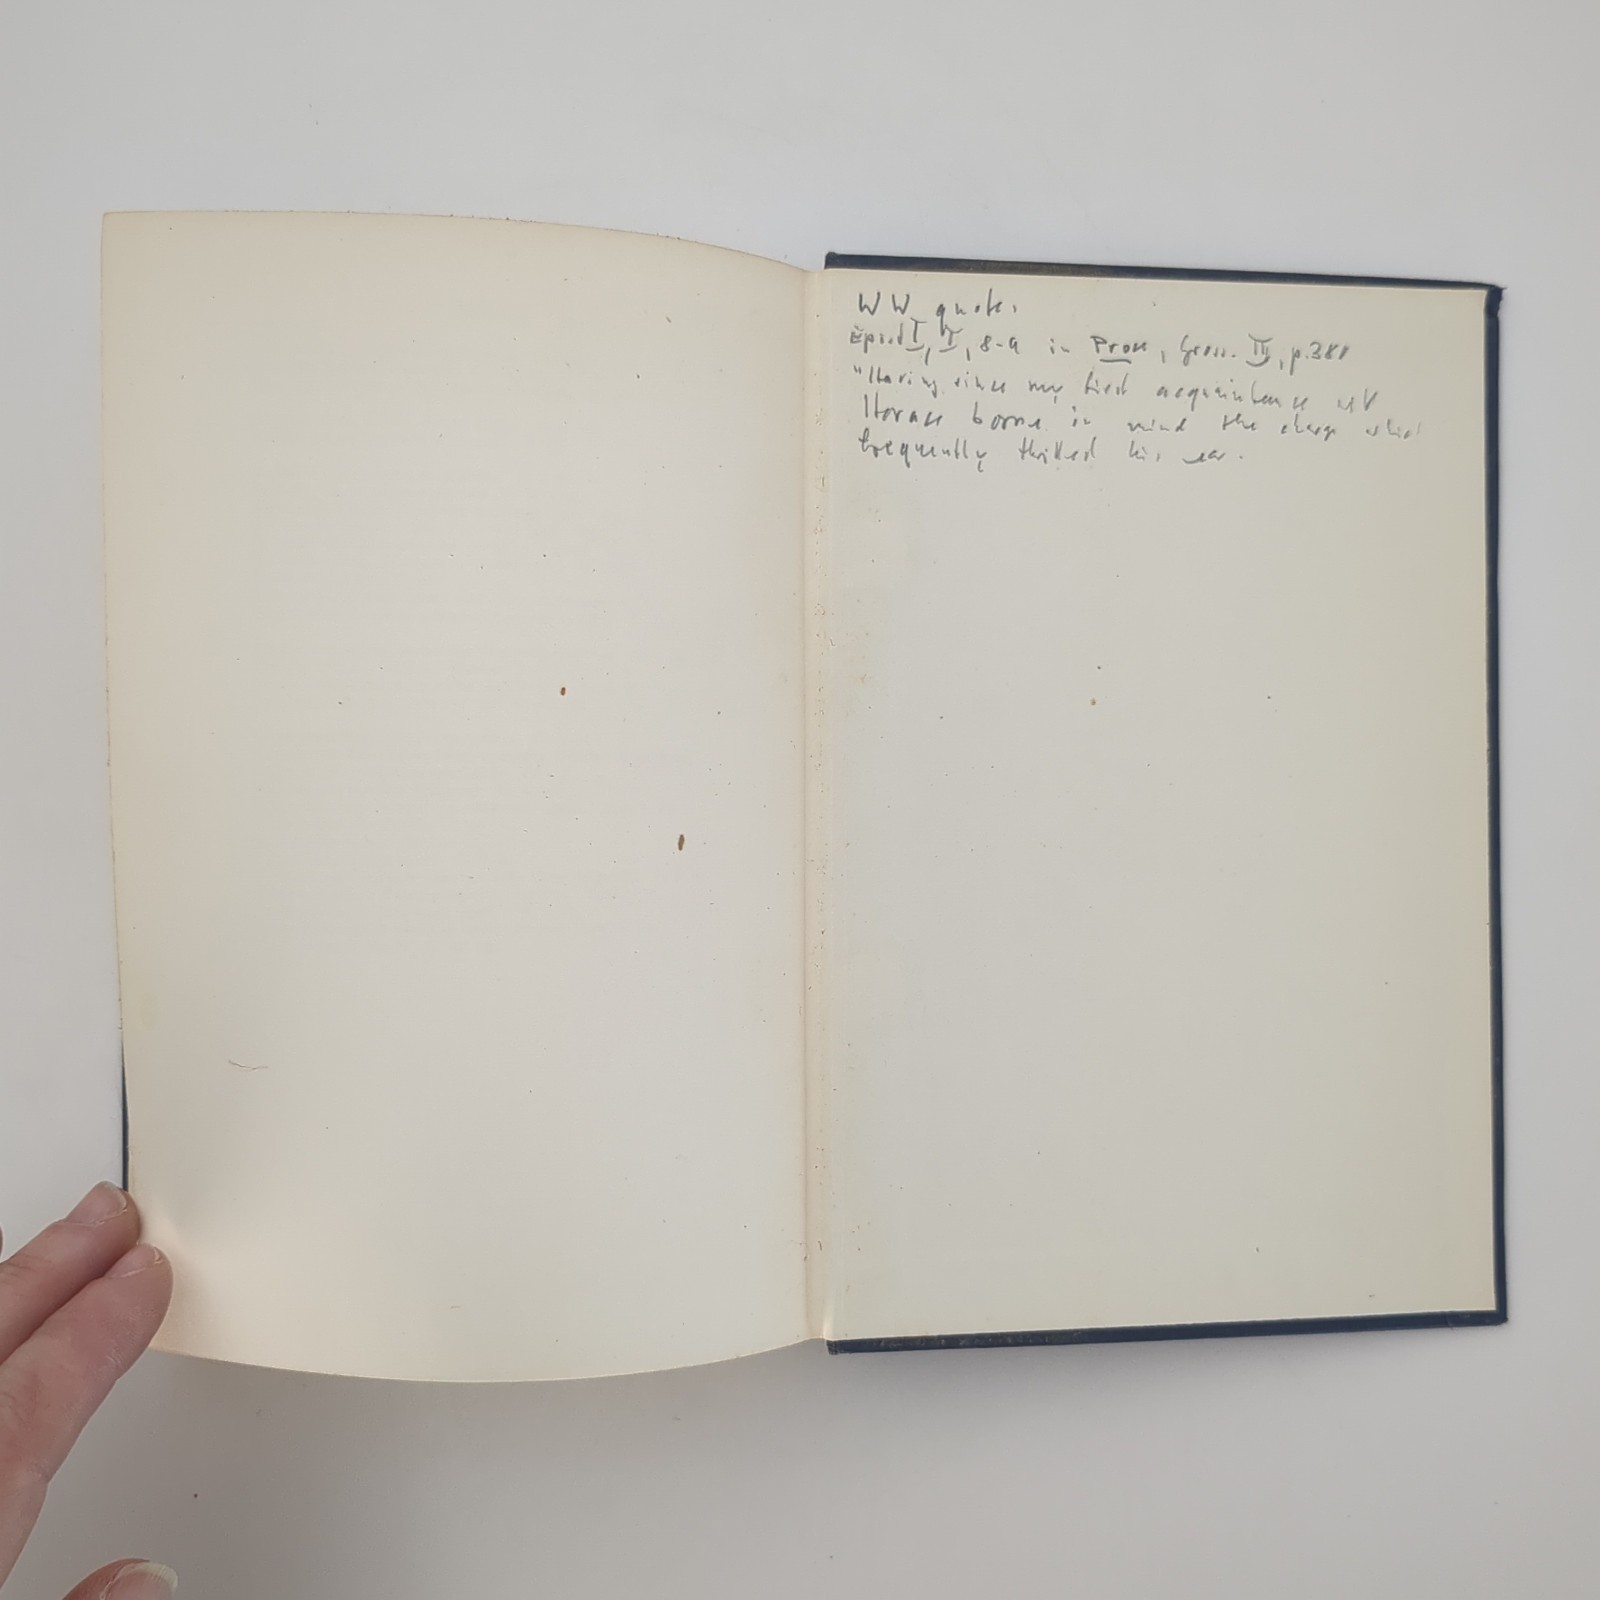 WW quotes
Epist I, I, 8-9 in Prose, Gros. III, p. 380
"Having since my first acquaintance with
Horace borne in mind the charge which
frequently thrilled his ear.